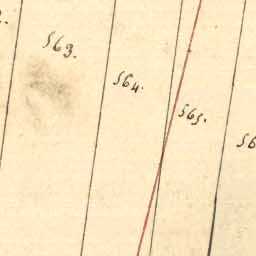 563.
564.
565.